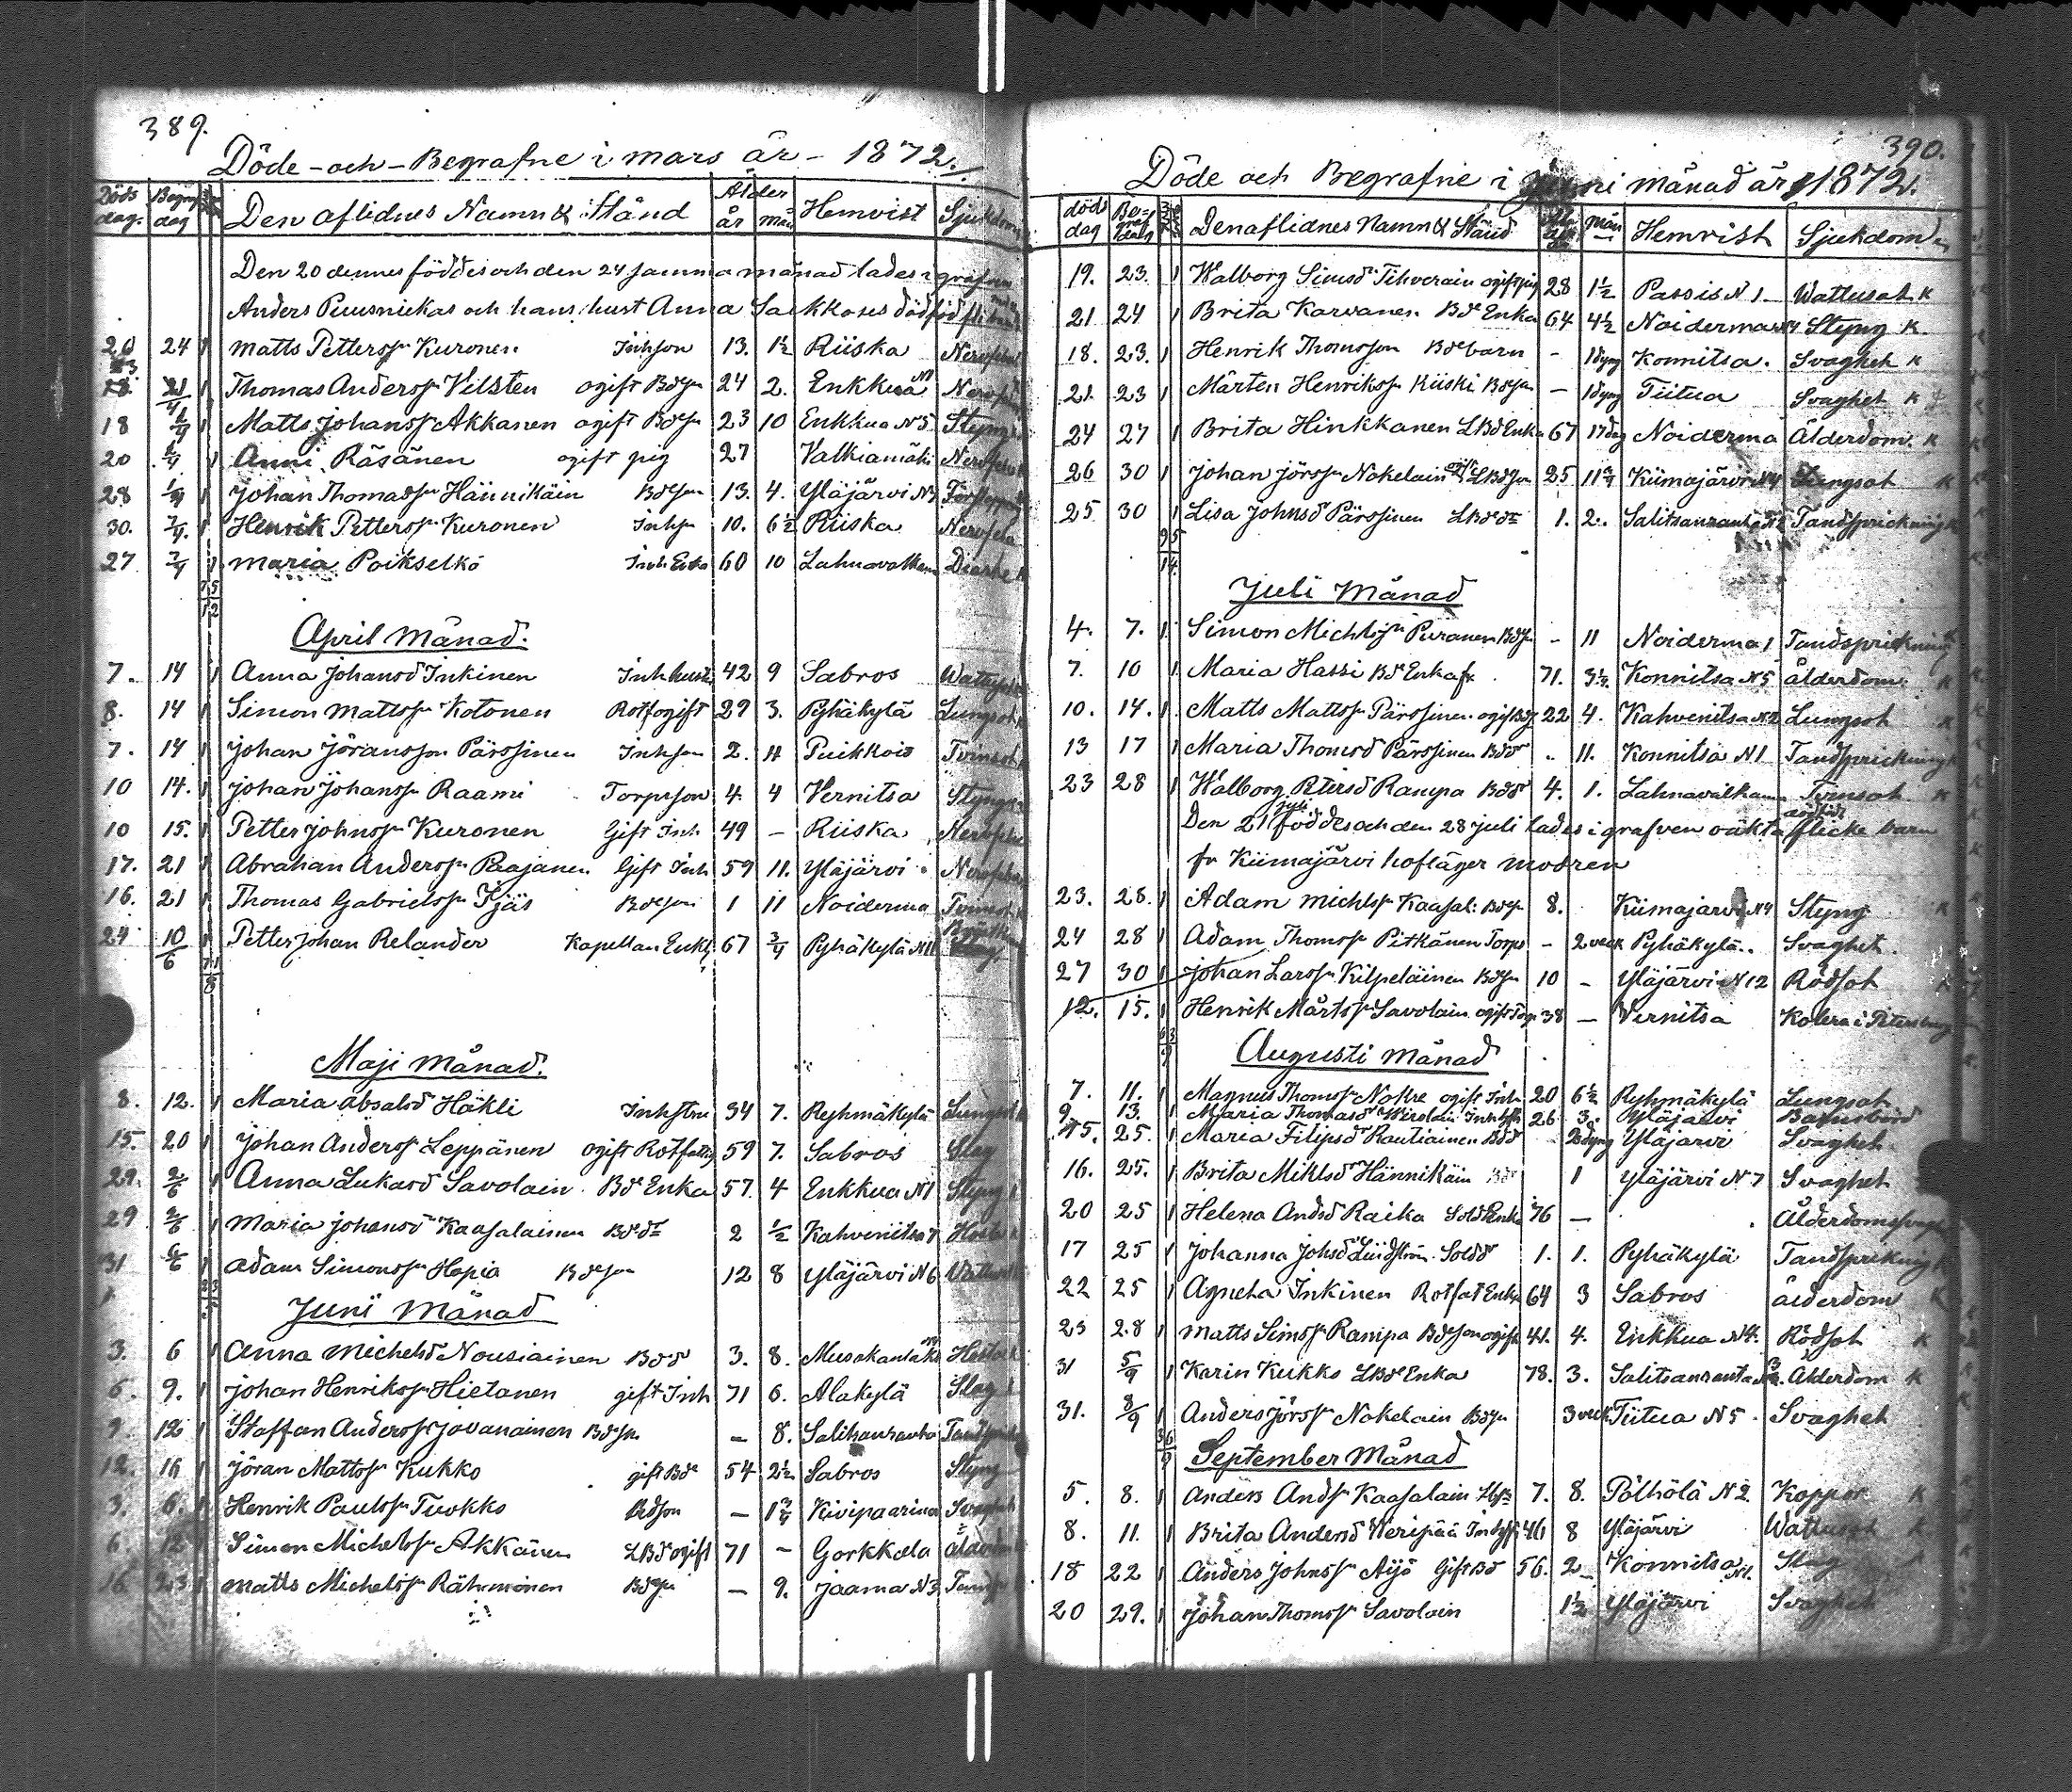 389.
Döde-och-Begrafne i mars år - 1872.
Döds dag. Begraf dag Den aflidnes Namn & Stånd Ålder år mån Hemvist Sjukdom
Den 20 dennes föddes och den 24 samma månad lades i grafven
Anders Puusniekas och hans hust Anna Saikkoses dödföd
20 24 1 Matts Petterss Kuronen Inhson 13. 1½ Riiska Nervfeb
Thomas Anderss Vilsten ogift Bdsn 24 2. Enkkua Nervfeb
18 1 Matts Johanss Akkanen ogift Bdsn 23 10 Enkkua N5 Styng
20 1 Anni Räsänen ogift pig 27 Valkiamäki Nervfeb
28 1 Johan Thomass Hännikäin Bdson 13. 4. Yläjärvi
30. 7/4. 1 Henrik Petterss Kuronen Inhsn 10. 6½ Riiska Nervfeb
27 7/4 1 Maria Poikselkä Inh Enka 60 10 Lahnavalkam
7 5
1 2
April Månad.
7. 14 1 Anna Johansd Inkinen Inh hust 42 9 Sabros Wattusot
8. 14 1 Simon Mattss Kotonen Rotfogift 29 3. Pyhäkylä Lungsot
7. 14 1 Johan Jöransson Pärssinen Inhson 2. 11 Puikkois Tvinsot
10 14. 1 Johan Johanss Raami Torpson 4. 4 Vernitsa Styng
10 15. 1 Petter Johnss Kuronen Gift Inh 49 - Riiska Nervfeb
17. 21 1 Abraham Anderss Paajanen Gift Inh 59 11. Yläjärvi Nervfeb
16. 21 1 Thomas Gabrielss Ijäs Bdson 1 11 Noiderma Tvinsot
24 10/6 1 Petter Johan Relander Kapellan Enkl. 67 3/4 Pyhäkylä N11
7 1
8
Maji Månad.
8. 12. 1 Maria Absalsd Häkli Inhstru 34 7. Ryhmäkylä Lungsot
15. 20 1 Johan Anderss Leppänen ogift Rotfattig 59 7. Sabros Slag
29. 2/6 1 Anna Lukasd Savolain Bde Enka 57. 4 Enkkua N1 Styng
29 2/6 1 Maria Johansd Kaasalainen Bdd 2 ½ Kahvenitsa 7 Hosta
31 6/6 1 Adam Simonss Hapia Bdeson 12 8 Yläjärvi N6 Wattusot
Juni Månad
3. 6 1 Anna Michelsd Nousiainen Bdd 3. 8. Musakanta Hosta
6. 9. 1 Johan Henrikss Hietanen gift Inh 71 6. Alakylä Slag
9. 12 1 Staffan Anderss Javanainen Bdesn - 8. Salitsanranta Tandspr
12. 16 1 Jöran Mattss Kukko gift Bde 54 2½ Sabros Styng
3. 6. 1 Henrik Paulss Tuokko Bdson - 1¾ Kivipaarina Svaghet
6 12 1 Simon Michelss Akkanen LBd ogift 71 - Gorkkala Ålderdom
16 23 1 Matts Michelss Rähmönen Bdesn - 9. Jaama N3 Tands
390.
Döde och Begrafne i Juni månad år 1872.
döds dag Begraf dag Den aflidnes Namn & Stånd år mån Hemvist Sjukdom
19. 23. 1 Walborg Simsd Tihverain ogift pig 28 1½ Passis N 1 Wattusot K
21 24 1 Brita Karvanen Bde Enka 64 4½ Noiderma Styng K.
18. 23. 1 Henrik Thomsson Bdebarn - 1 dyng Konnitsa. Svaghet K
21. 23 1 Mårten Henrikss Kiiski Bdesn - 1 dyng Tiitua Svaghet K
24 27 1 Brita Hinkkanen LBd Enka 67 17 dag Noiderma Ålderdom. K
26 30 1 Johan Jörss Nokelain ogift LBdsn 25 11¾ Kiimajärvi N4 Lungsot K
25 30 1 Lisa Johnsd Pärssinen LBdd 1. 2. Salitsanranta Tandsprickning K
9 5
14
Juli Månad
4. 7. 1 Simon Michlss Puranen Bdsn - 11 Noiderma 1 Tandsprickning
7. 10 1 Maria Hassi Bd Enka fr 71. 3½. Konnitsa N5 Ålderdom. K
10. 14. 1 Matts Mattss Pärssinen ogift Bds 22 4. Kahvenitsa N2 Lungsot K
13 17 1 Maria Thomsd Pärssinen Bdd " 11. Konnitsa N1 Tandsprickning
23 28 1 Walborg Petersd Rampa Bdd 4. 1. Lahnavalkam Tvinsot K
Den 21 juli föddes och den 28 juli lades i grafven oäkta dödfödt flicke barn
fr Kiimajärvi hofläger modren
23. 28. 1 Adam Michlss Kaasal. Bdsn 8. Kiimajärvi N4 Styng K
24 28 1 Adam Thomss Pitkänen Torps - 2 veck Pyhäkylä.. Svaghet.
27 30 1 Johan Larss Kilpeläinen Bdsn 10 - Yläjärvi N12 Rödsot
12. 15. 1 Henrik Mårtss Savolain ogift 38 - Vernitsa Kolera i Petersburg
6 3
9
Augusti månad
7. 11. 1 Magnus Thomss Nokre ogift Inh 20 6½ Ryhmäkylä Lungsot
9. 13. 1 Maria Thomasd Wirolain Inhh 26 3. Yläjärvi Barnsbörd
15. 25. 1 Maria Filipsd Rautiainen Bdd dyng Yläjärvi Svaghet
16. 25. 1 Brita Miklsd Hännikäin Bdd 1 Yläjärvi N7 Svaghet
20 25 1 Helena Andsd Raika Sold Enka 76 - Ålderdomssvagh
17 25 1 Johanna Johsd Lindström Soldd 1. 1. Pyhäkylä Tandsprickning K
22 25 1 Agneta Inkinen Rotfat Enka 64 3 Sabros ålderdom K
23 28 1 Matts Simss Rampa Bdeson ogift 41. 4. Enkkua N4. Rödsot K
31 5/9 1 Karin Kukko LBd Enka 78. 3. Salitsanranta Ålderdom K
31. 8/9 1 Anders Jörss Nokelain Bdsn 3 veck Tiitua N5. Svaghet
3 6
9
September Månad
5. 8. 1 Anders Ands Kaasalain 7. 8. Pölhölä N2. Koppor K
8. 11. 1 Brita Andersd Weripää 46 8 Yläjärvi Wattusot
18 22 1 Anders Johnss Äijö Gift Bd 56. 2 Konnitsa N1. Slag
20 29. 1 Johan Thomss Savolain 1½ Yläjärvi Svaghet